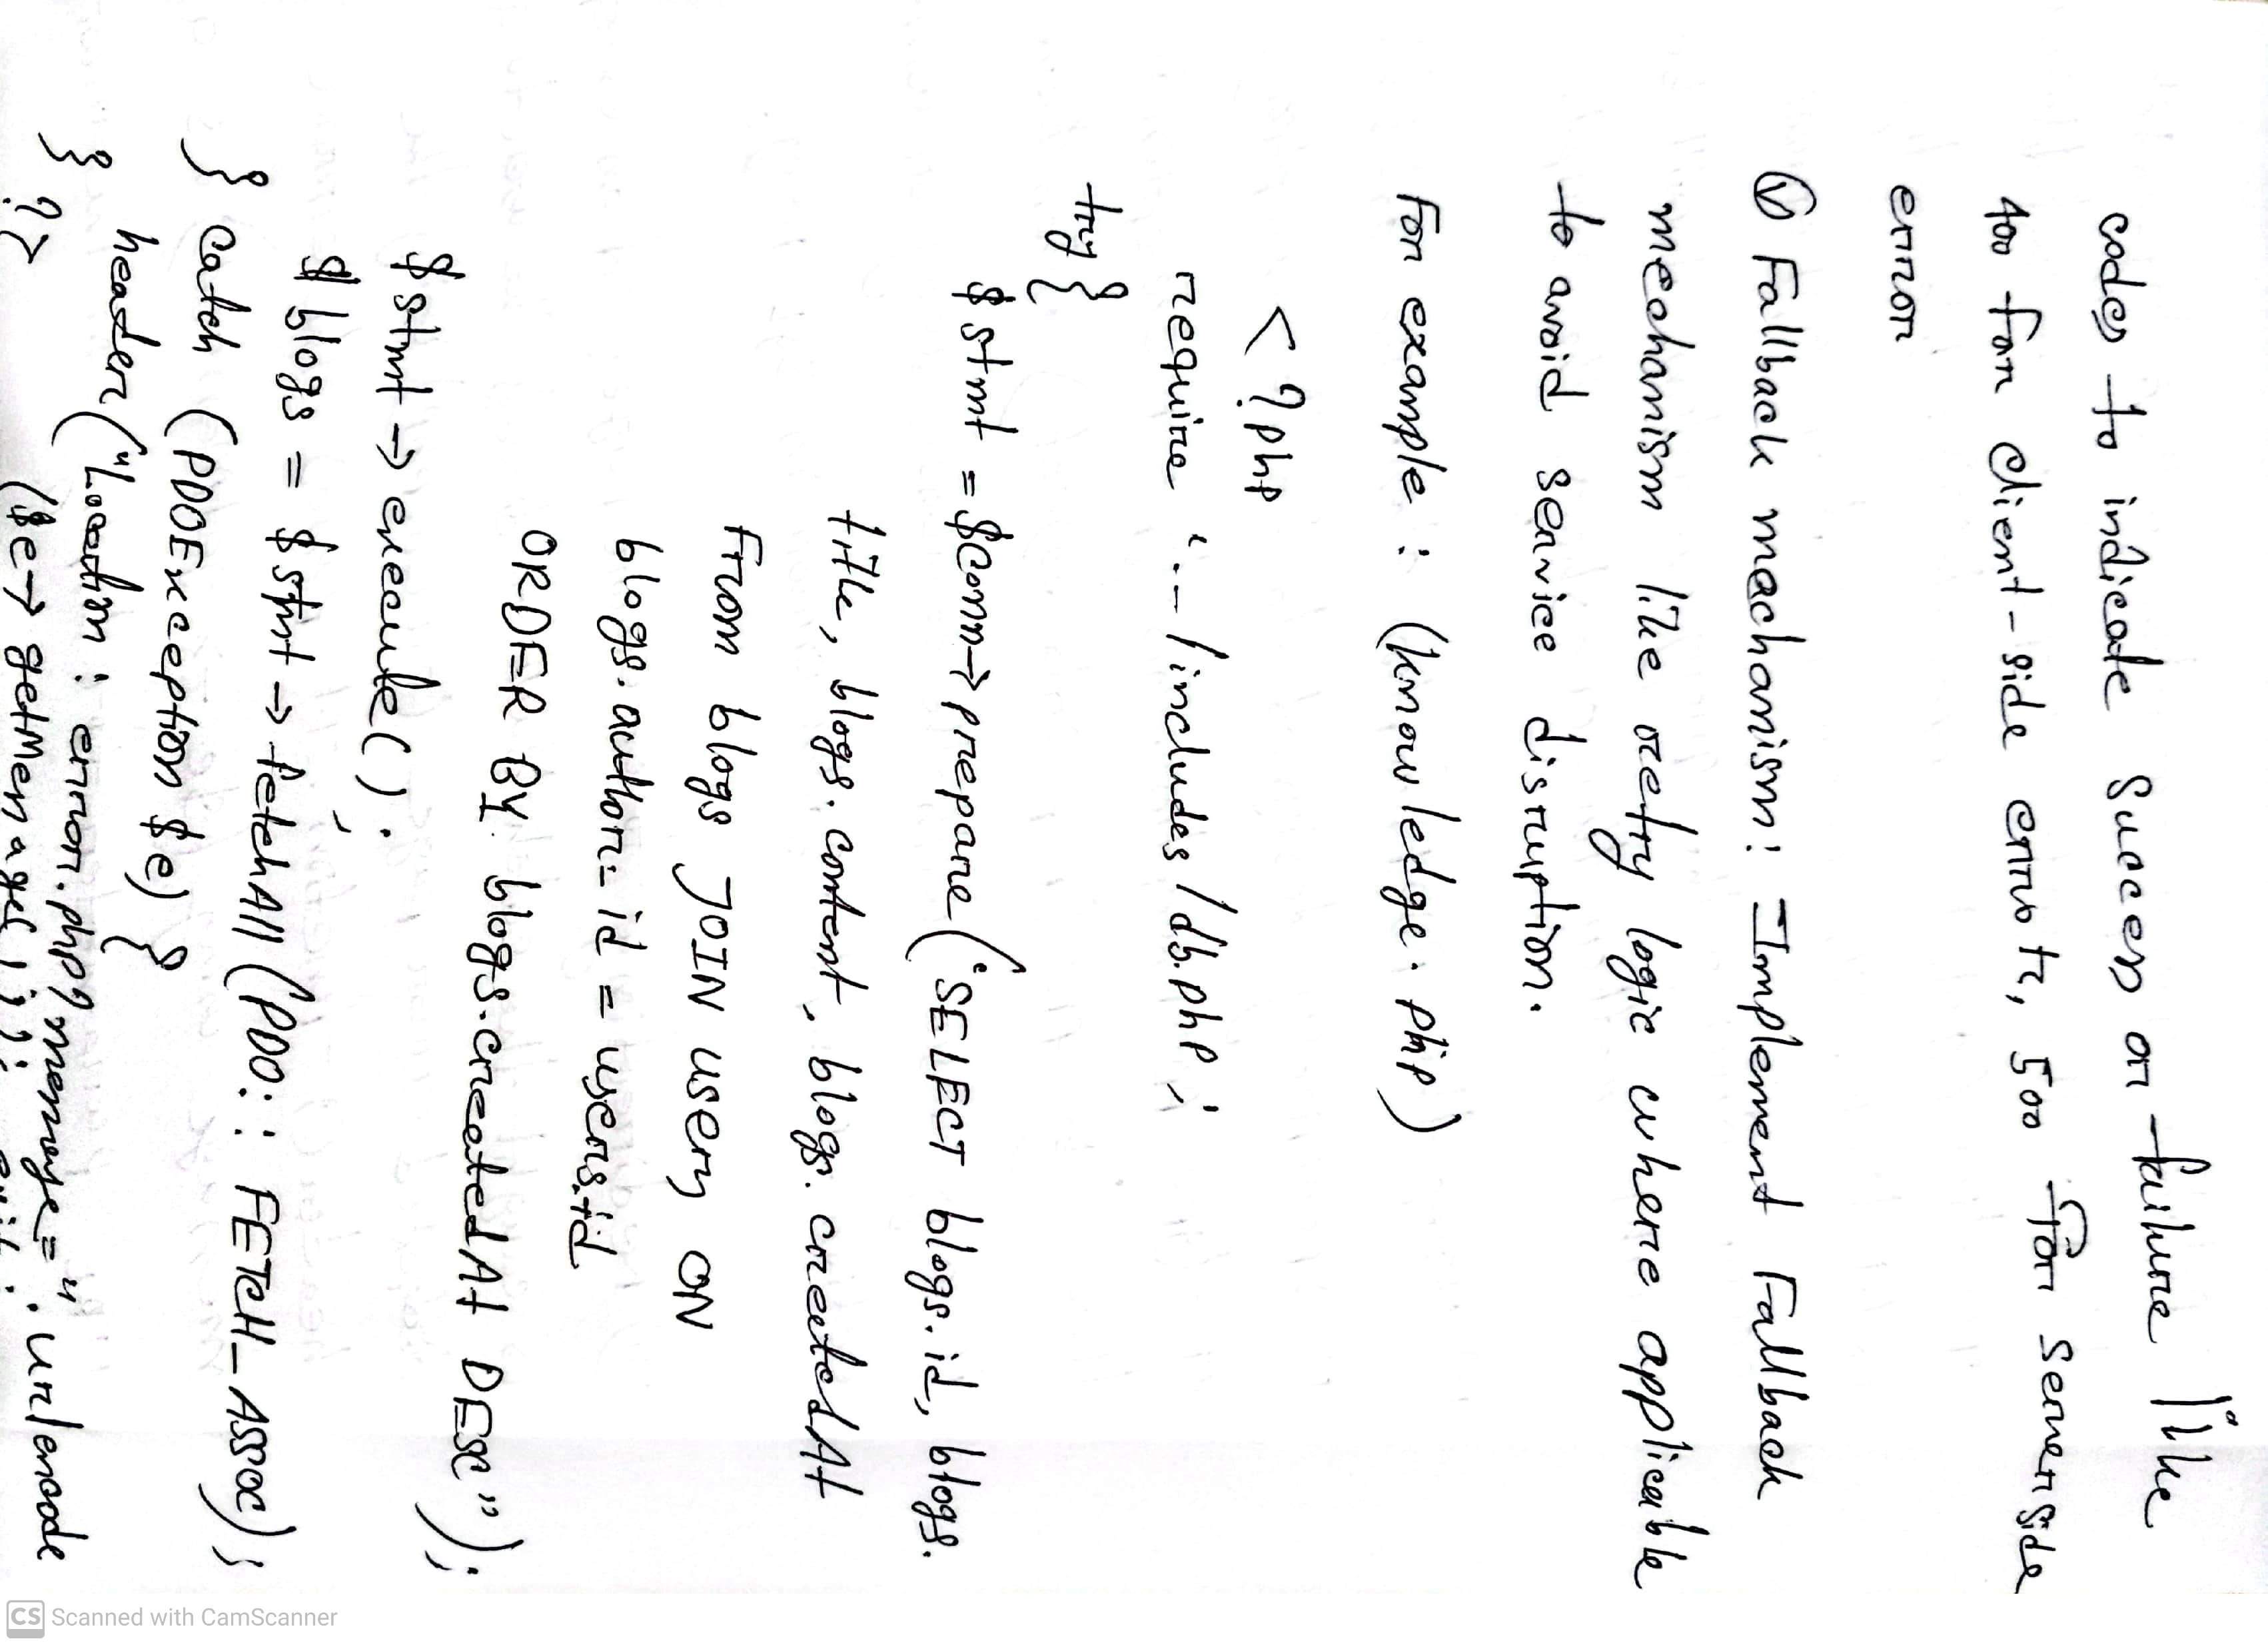 codes to indicate success or failure like
400 for client-side error, 500 for serverside
error
Ⓥ Fallback machanism: Implement Fallback
mechanism like retry logic where applicable
to avoid service disruption.
For example : (knowledge.php)
<?php
require '../includes/db.php';
try {
$stmt = $conn->prepare("SELECT blogs.id, blogs.
title, blogs.content, blogs.createdAt
From blogs JOIN users ON
blogs.author_id = users.id
ORDER BY blogs.createdAt DESC");
$stmt -> execute();
$blogs = $stmt -> fetchAll (PDO::FETCH_ASSOC);
} catch (PDOException $e) {
header("Location: error.php?message=" . urlencode
($e-> getMessage())); exit;
} ?>
CS Scanned with CamScanner